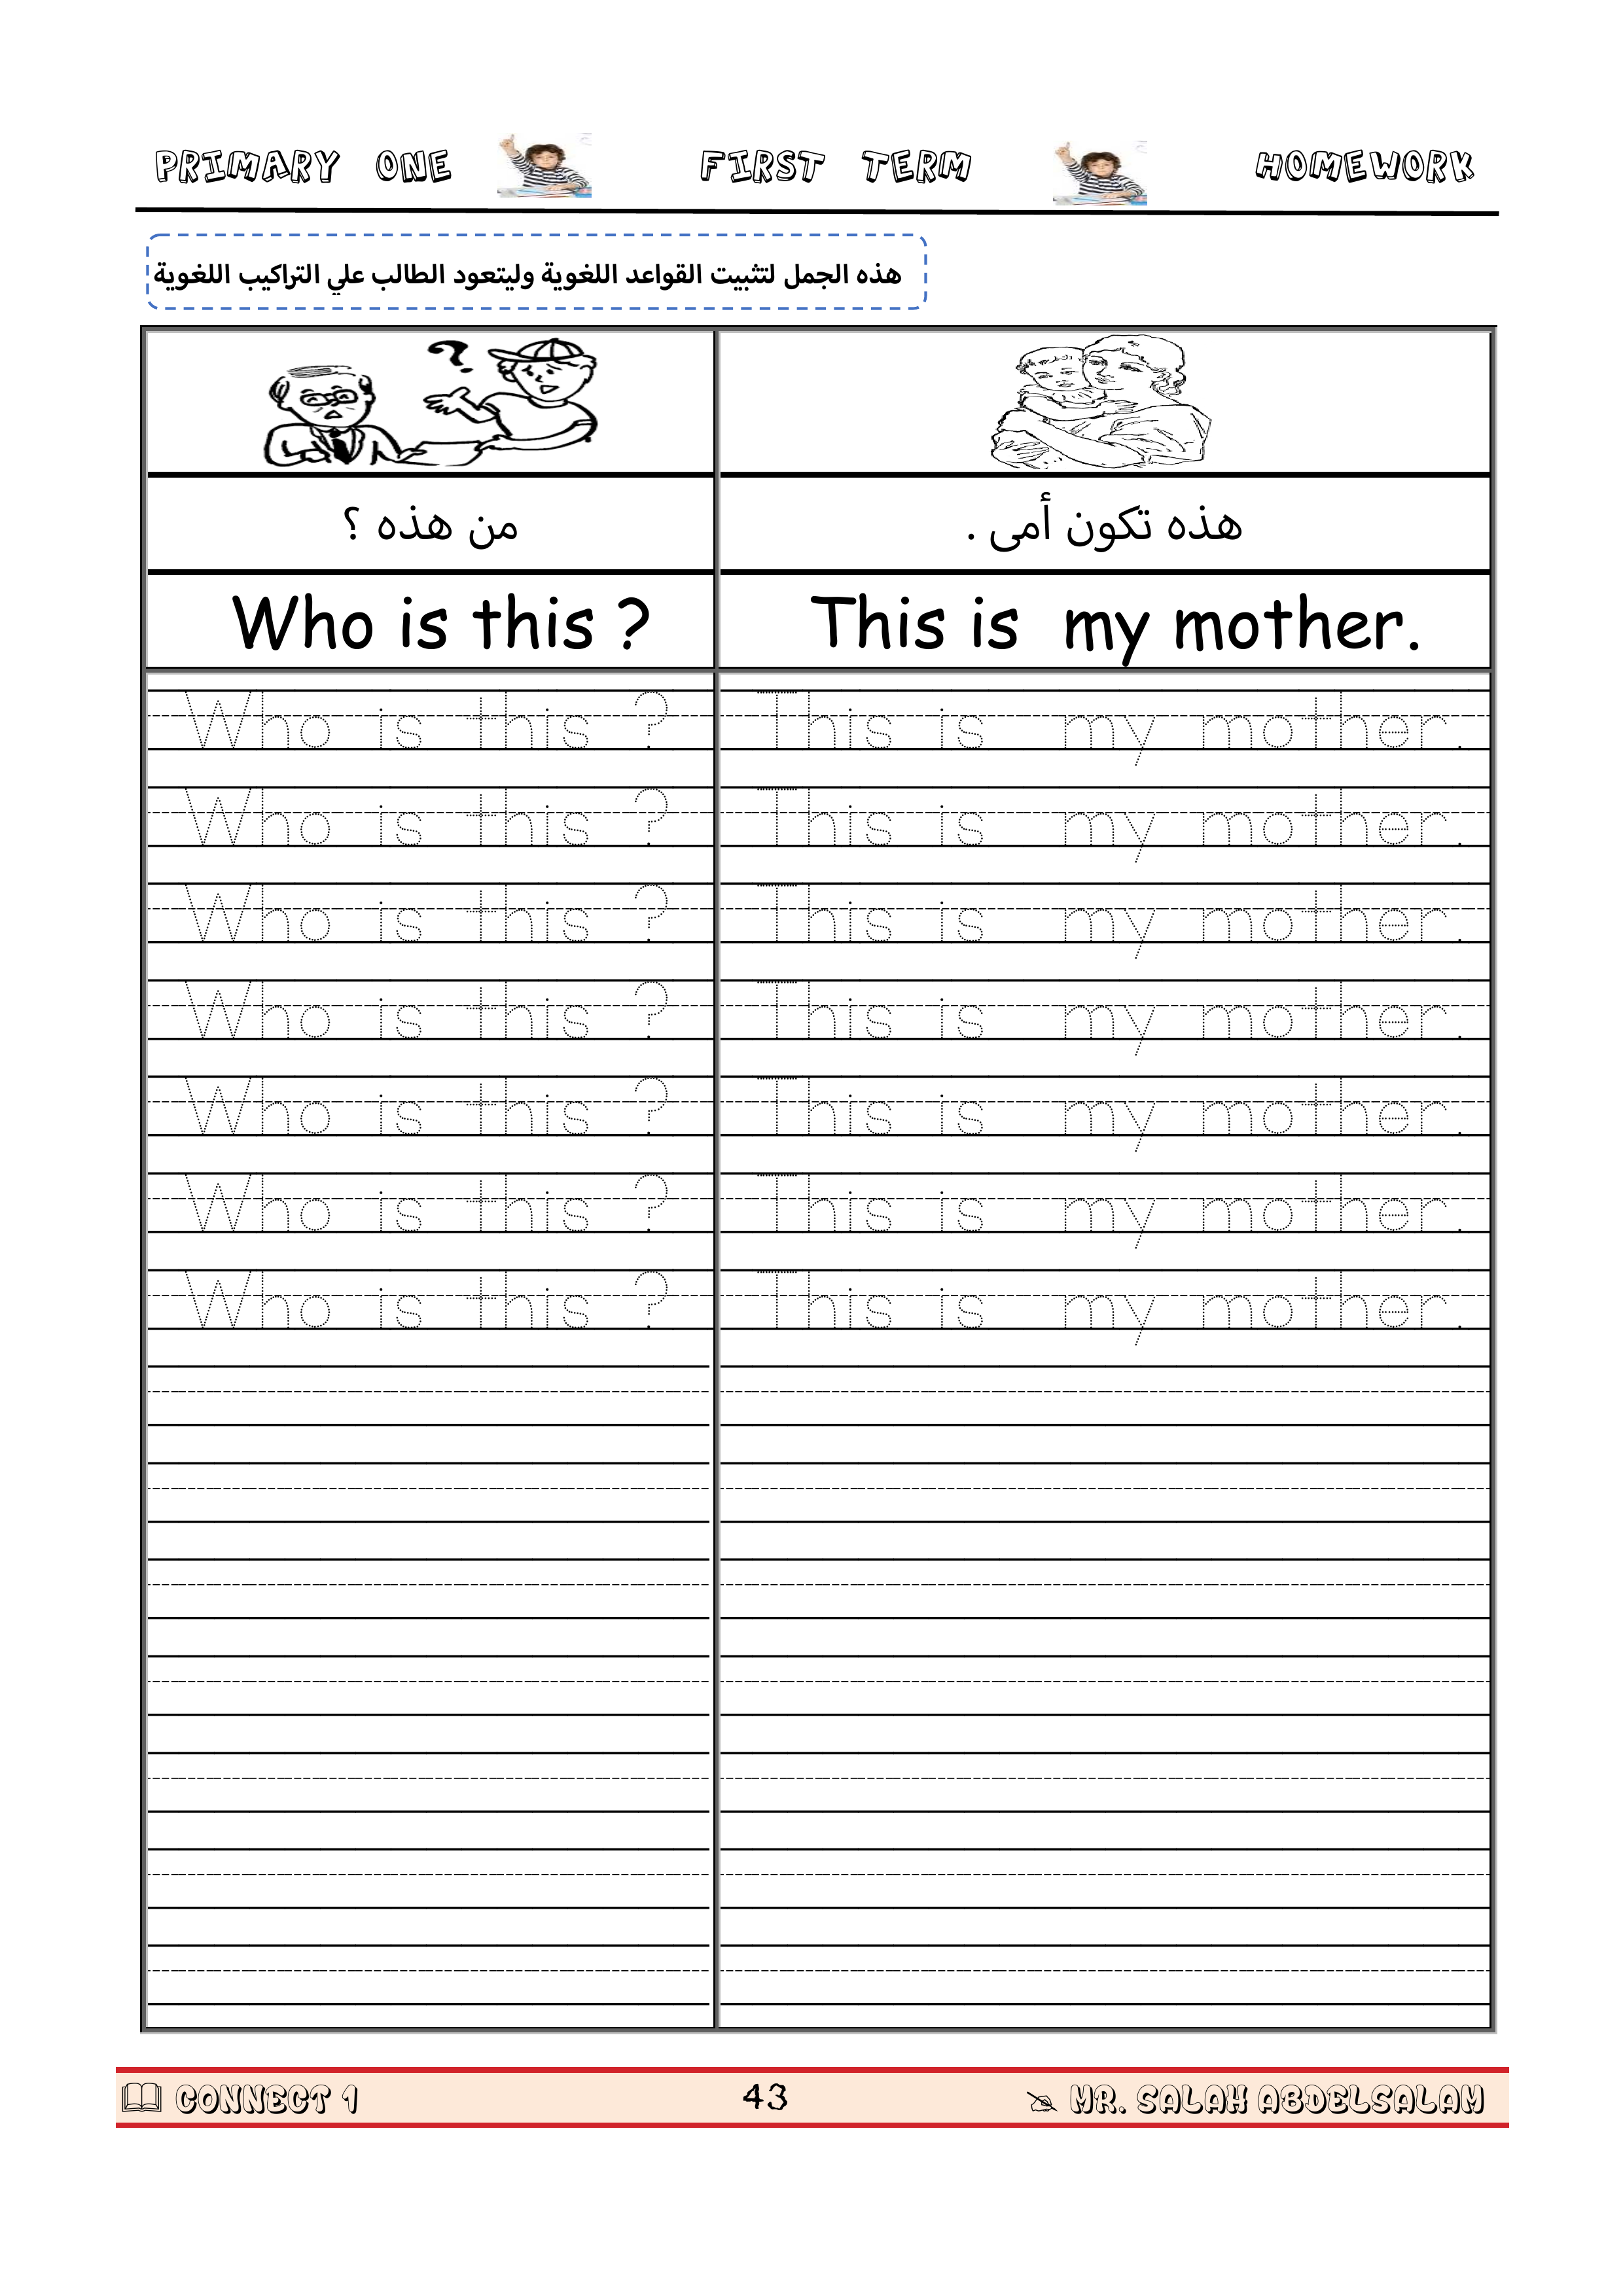 PRIMARY ONE FIRST TERM HOMEWORK
هذه الجمل لتثبيت القواعد اللغوية وليتعود الطالب علي التراكيب اللغوية
من هذه ؟
هذه تكون أمى .
Who is this ?
This is my mother.
Who is this ? This is my mother.
Who is this ? This is my mother.
Who is this ? This is my mother.
Who is this ? This is my mother.
Who is this ? This is my mother.
Who is this ? This is my mother.
Who is this ? This is my mother.
CONNECT 1 43 MR. SALAH ABDELSALAM